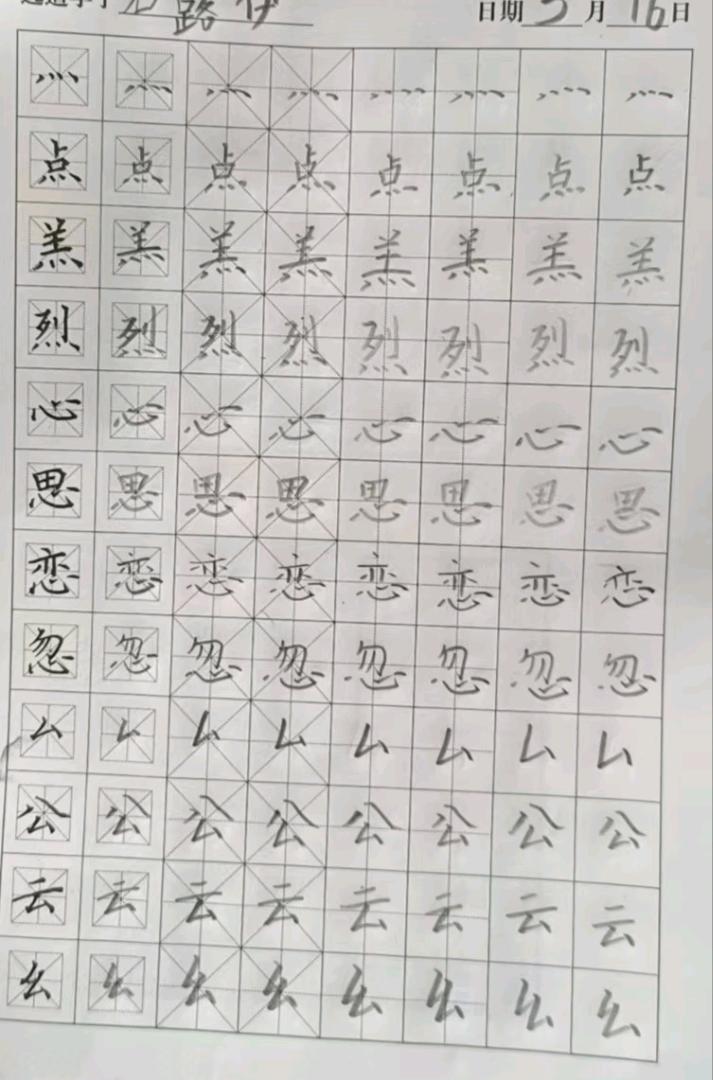 路伊 日期 月16日
灬 灬 灬 灬 灬 灬 灬 灬
点 点 点 点 点 点 点 点
羔 羔 羔 羔 羔 羔 羔 羔
烈 烈 烈 烈 烈 烈 烈 烈
心 心 心 心 心 心 心 心
思 思 思 思 思 思 思 思
恋 恋 恋 恋 恋 恋 恋 恋
忽 忽 忽 忽 忽 忽 忽 忽
厶 厶 厶 厶 厶 厶 厶 厶
公 公 公 公 公 公 公 公
云 云 云 云 云 云 云 云
幺 幺 幺 幺 幺 幺 幺 幺